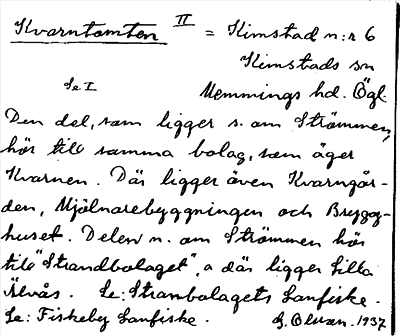 Kvarntomten II = Kimstad n:r 6
Kimstads sn
Se I Memmings hd. Ögl.
Den del, som ligger s. om Strömmen,
hör till samma bolag, som äger
Kvarnen. Där ligger även Kvarngår-
den, Mjölnarebyggningen och Brygg-
huset. Delen n. om Strömmen hör
till "Strandbolaget", a där ligger Lilla
Älvås. Se: Stranbolagets Lanfiske.
Se: Fiskeby Lanfiske. G. Olsson. 1937